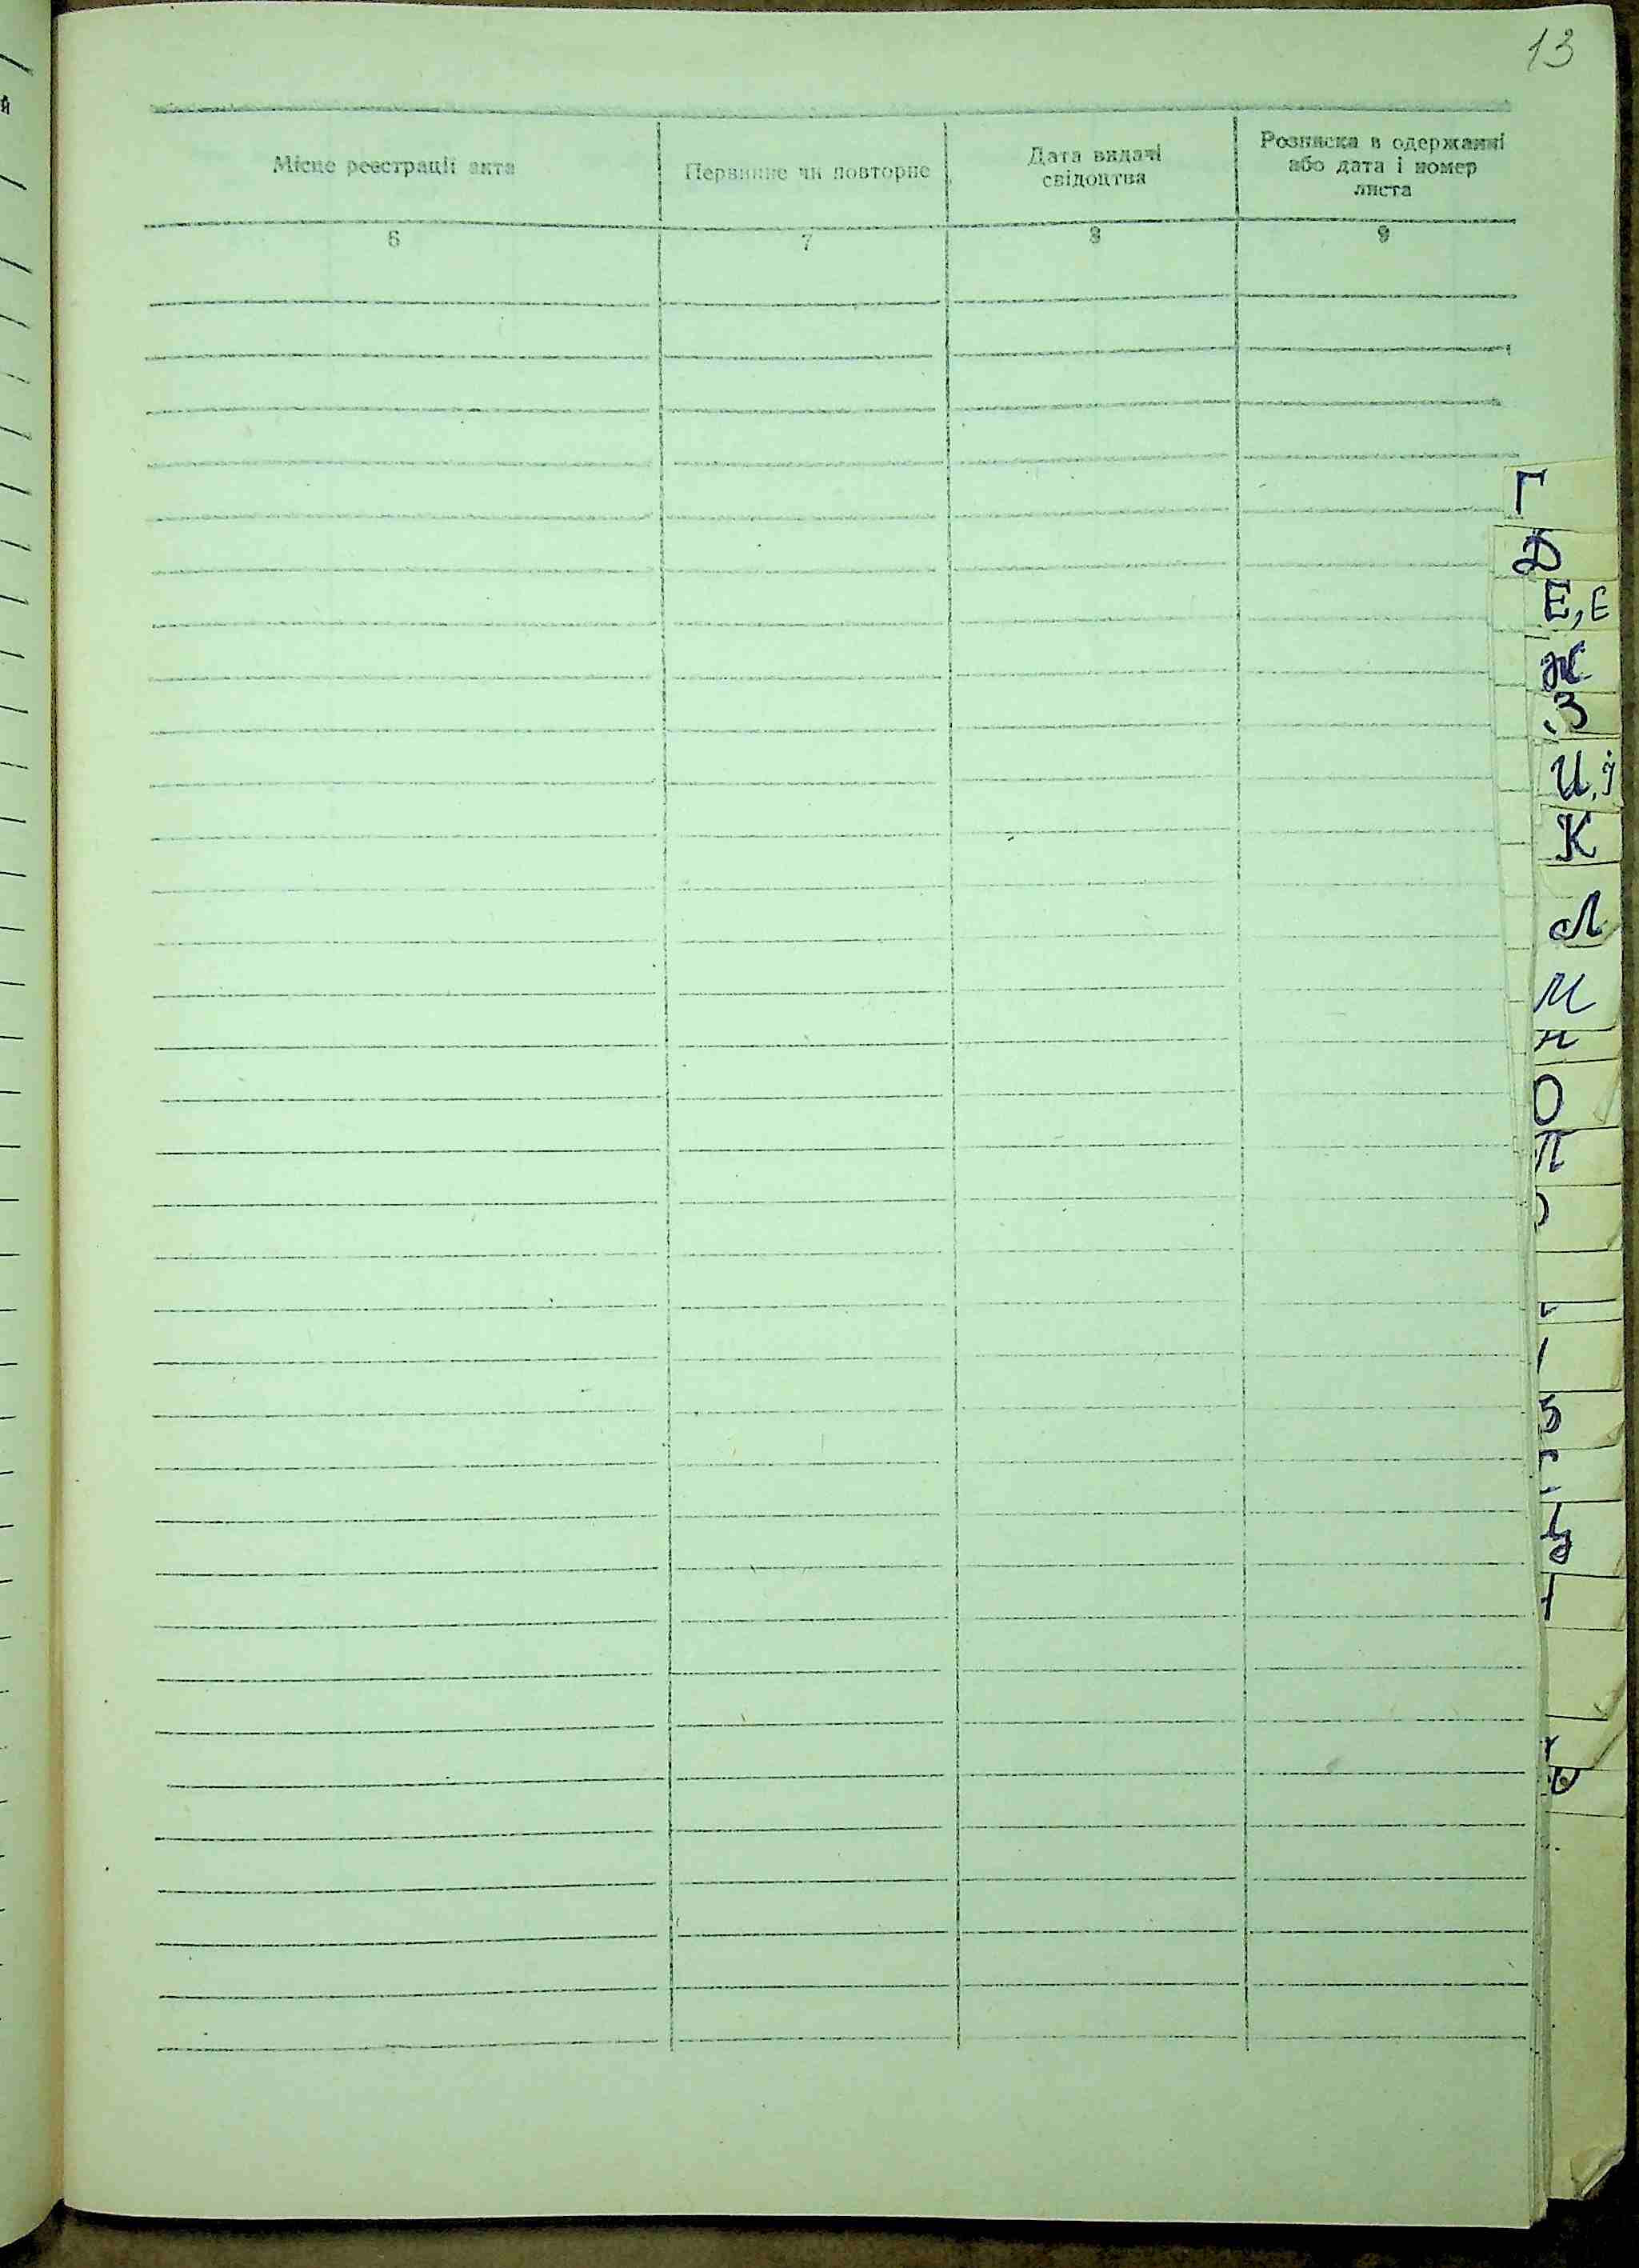 13
Місце реєстрації акта
Первинне чи повторне
Дата видачі
свідоцтва
Розписка в одержанні
або дата і номер
листа
6
7
8
9
Г
Д
Е, Є
Ж
З
И, І
К
Л
М
Н
О
П